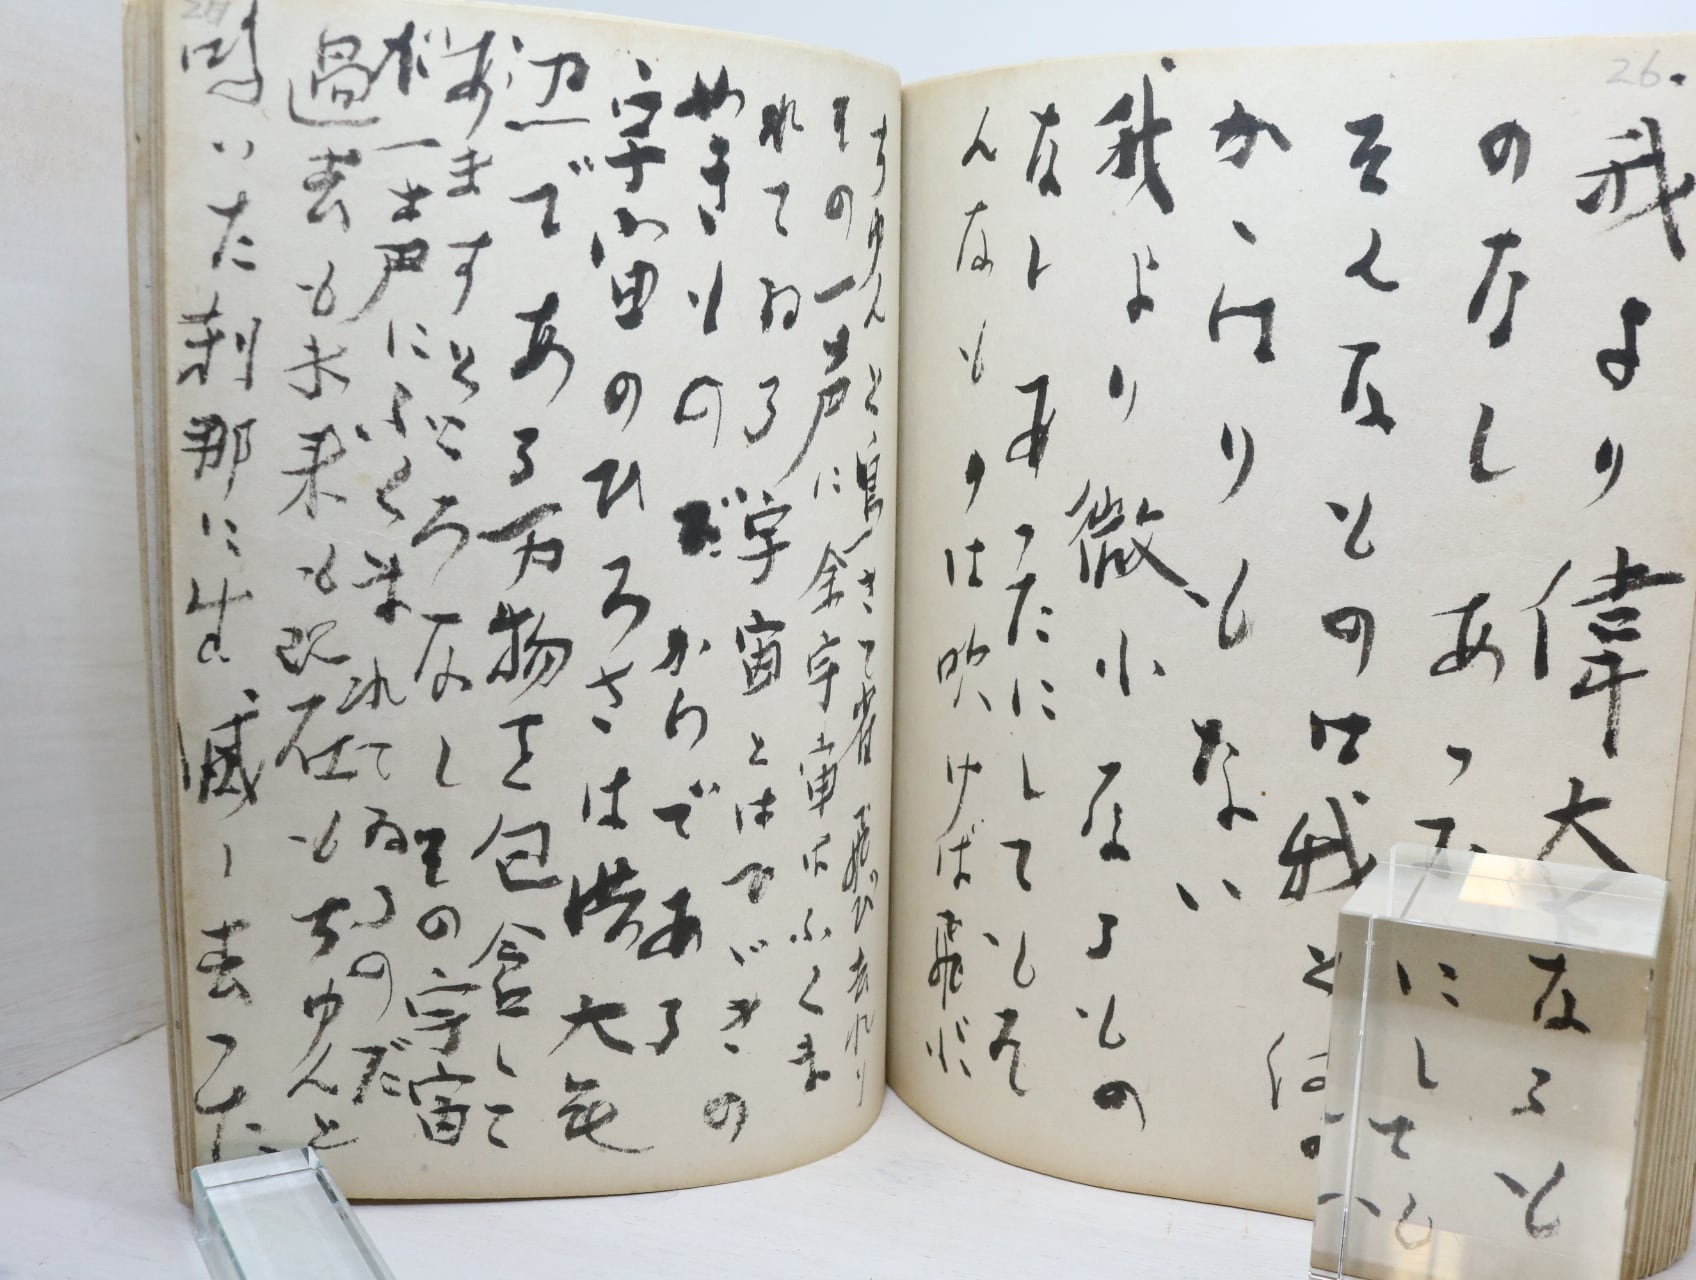 26.
我より偉大なるも
のなしあつたにしても
そんなものは我とは
かゝはりもない
我より微小なるもの
なしあつたにしてもそ
んなものは吹けば飛ぶ
ちゆんと鳴きて雀飛び去れり
その一声に全宇宙はふくま
れてゐる 宇宙とは
ばかりである
宇宙のひろさは茫大無
辺である万物を包含して
あますところなしその宇宙
が一声にふくまれてゐるのだ
過去も未来も現在もちゆんと
鳴いた刹那に生滅し去つた